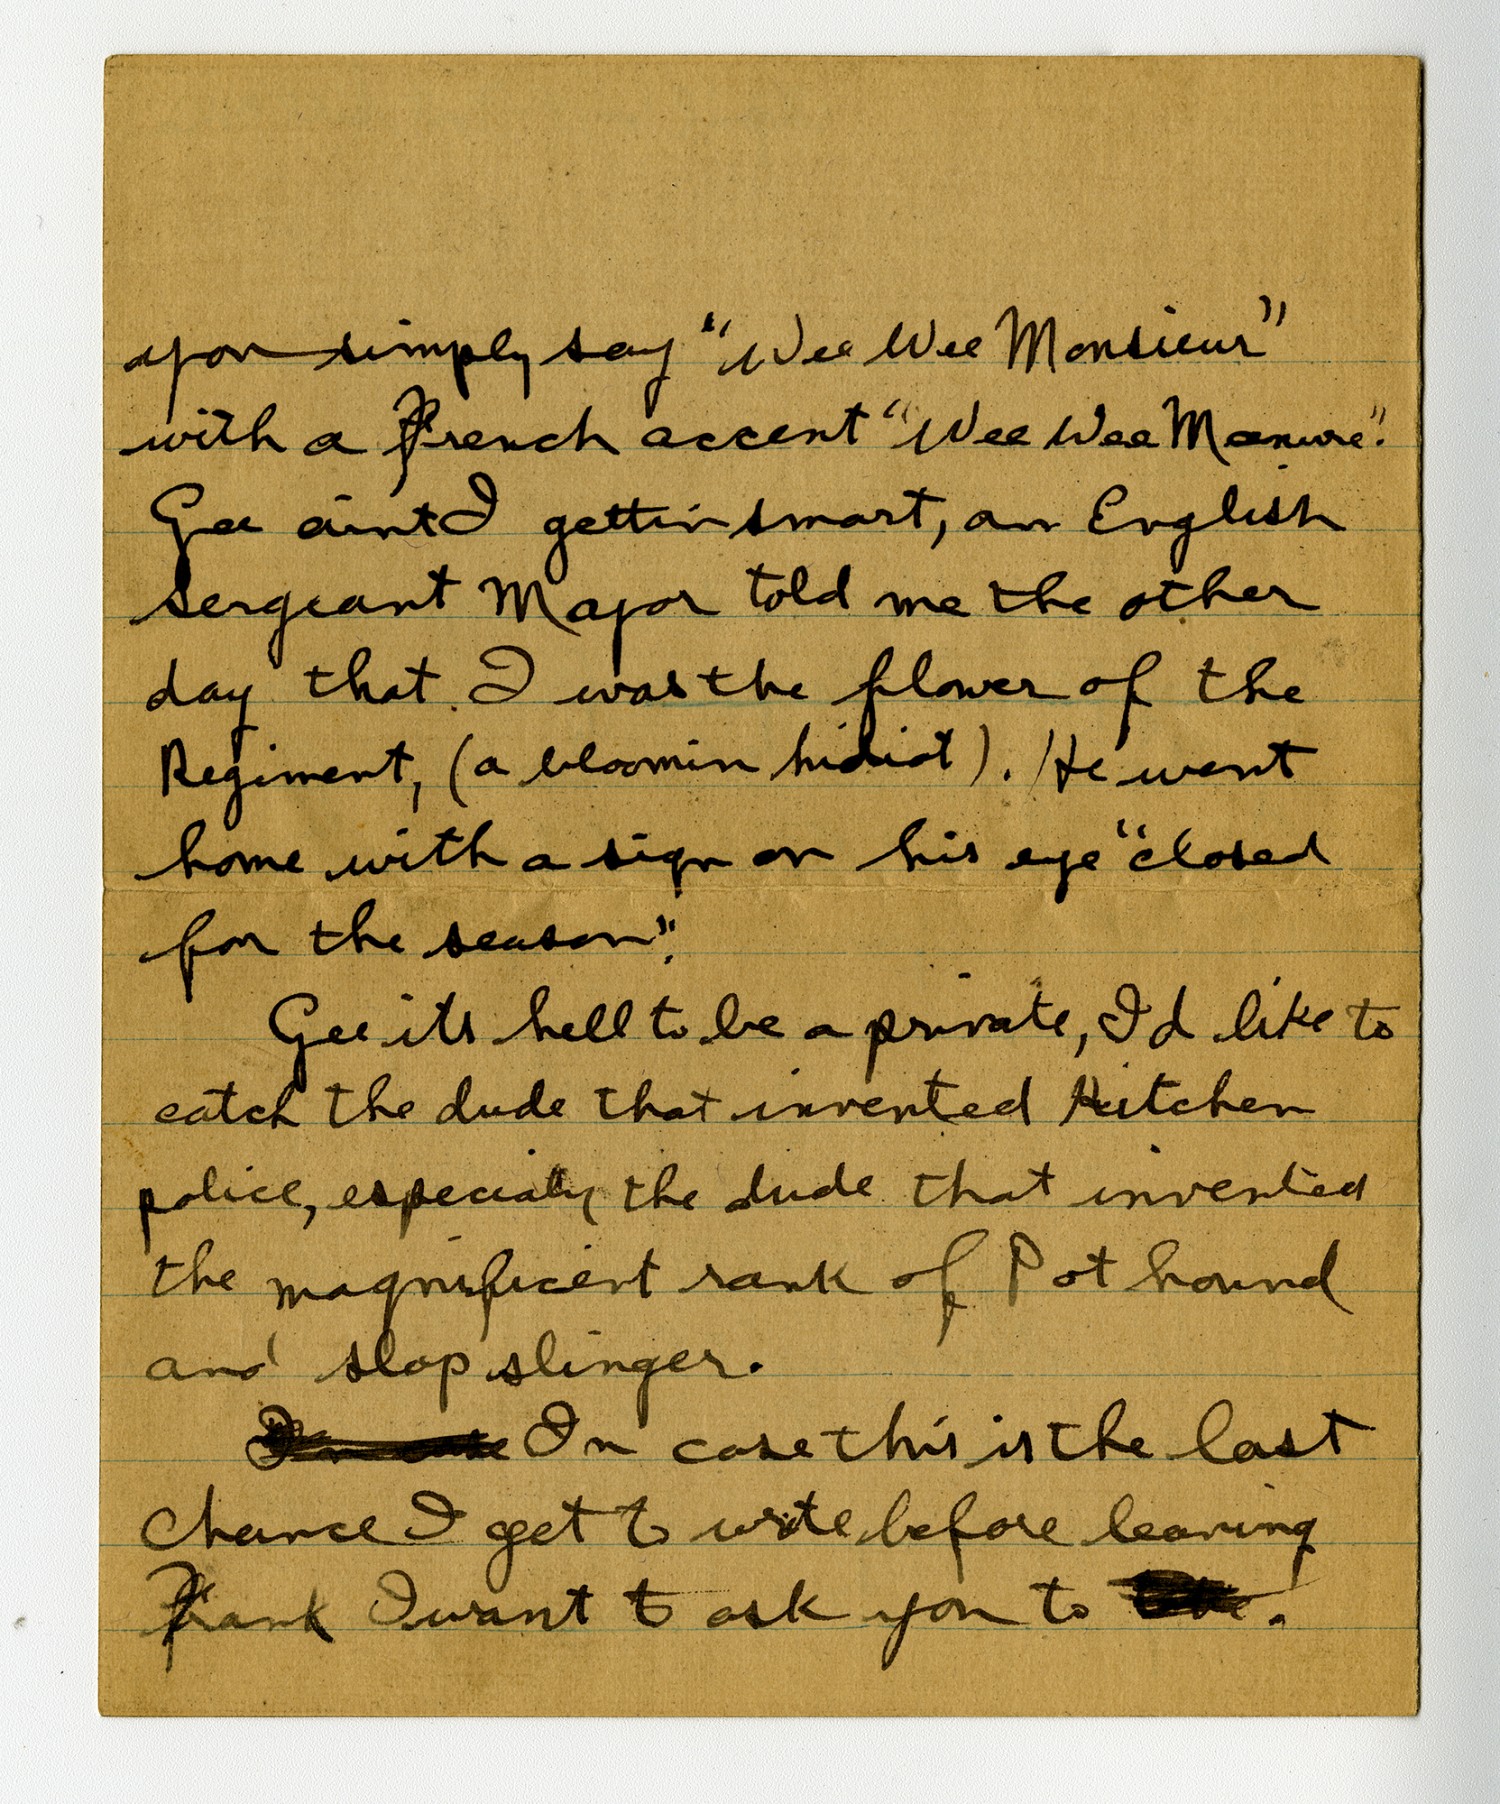 you simply say "Wee Wee Monsieur"
with a French accent "Wee Wee Manure".
Gee aint I gettin smart, an English
Sergeant Major told me the other
day that I was the flower of the
Regiment, (a bloomin hidiot). He went
home with a sign on his eye "closed
for the season".
Gee its hell to be a private, I'd like to
catch the dude that invented Kitchen
police, especially the dude that invented
the magnificent rank of Pot hound
and slop slinger.
In case In case this is the last
chance I get to write before leaving
Frank I want to ask you to .